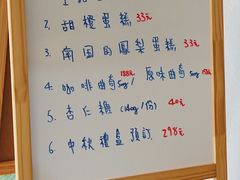 2. 甜橙蛋糕 33元
3. 南国的鳳梨蛋糕 33元
4. 咖啡曲奇 / 原味曲奇
5. 杏仁糖 (140g/份) 40元
6. 中秋禮盒預訂 298元